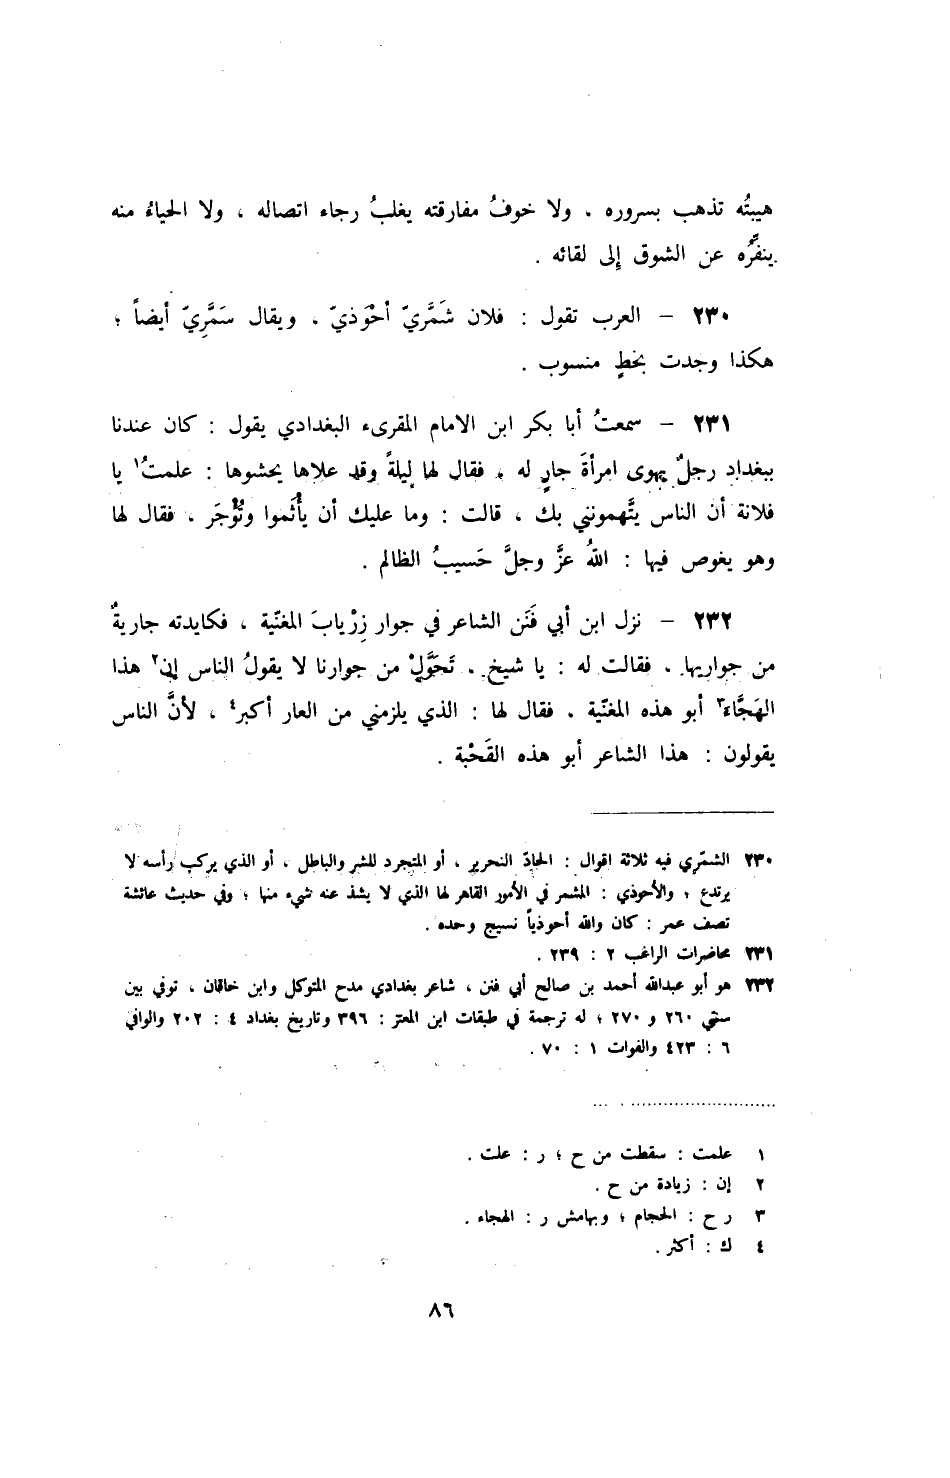 هيبتُه تذهب بسروره ، ولا خوفُ مفارقته يغلبُ رجاء اتصاله ، ولا الحياءُ منه
ينفِّرُه عن الشوق إلى لقائه .
٢٣٠ – العرب تقول : فلان شَمَّريّ أحْوَذيّ ، ويقال سَمَّرِيّ أيضاً ؛
هكذا وجدت بخطٍ منسوب .
٢٣١ – سمعتُ أبا بكر ابن الامام المقرىء البغدادي يقول : كان عندنا
ببغدادِ رجلٌ يهوى امرأةَ جارٍ له ، فقال لها ليلةً وقد علاها يحشوها : علمتُ١ يا
فلانة أن الناس يتَّهمونني بك ، قالت : وما عليك أن يأثَموا وتُؤْجَر ، فقال لها
وهو يغوص فيها : اللهُ عزَّ وجلَّ حَسيبُ الظالم .
٢٣٢ – نزل ابن أبي فَنَن الشاعر في جوار زِرْيابَ المغنّية ، فكايدته جاريةٌ
من جواريها ، فقالت له : يا شيخ ، تَحَوَّلْ من جوارنا لا يقولُ الناس إن٢ هذا
الهَجَّاء٣ أبو هذه المغنّية ، فقال لها : الذي يلزمني من العار أكبر٤ ، لأنَّ الناس
يقولون : هذا الشاعر أبو هذه القَحْبة .
٢٣٠ الشمّري فيه ثلاثة اقوال : الحادّ النحرير ، أو المتجرد للشر والباطل ، أو الذي يركب رأسه لا
يرتدع ؛ والأحوذي : المشمر في الأمور القاهر لها الذي لا يشذ عنه شيء منها ؛ وفي حديث عائشة
تصف عمر : كان والله أحوذياً نسيج وحده .
٢٣١ محاضرات الراغب ٢ : ٢٣٩ .
٢٣٢ هو أبو عبدالله أحمد بن صالح أبي فنن ، شاعر بغدادي مدح المتوكل وابن خاقان ، توفي بين
سنتي ٢٦٠ و ٢٧٠ ؛ له ترجمة في طبقات ابن المعتز : ٣٩٦ وتاريخ بغداد ٤ : ٢٠٢ والوافي
٦ : ٤٢٣ والفوات ١ : ٧٠ .
١ علمت : سقطت من ح ؛ ر : علت .
٢ إن : زيادة من ح .
٣ ر ح : الحجام ؛ وبهامش ر : الهجاء .
٤ ك : أكثر .
٨٦